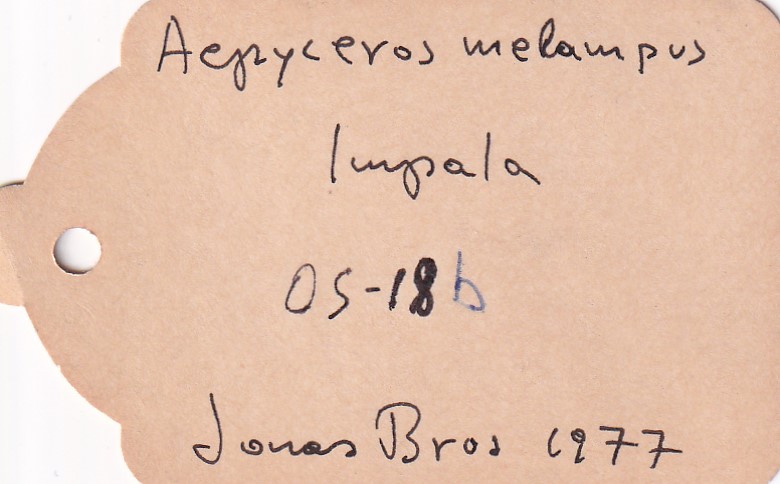 Aepyceros melampus
Impala
OS-18b
Jonas Bros 1977